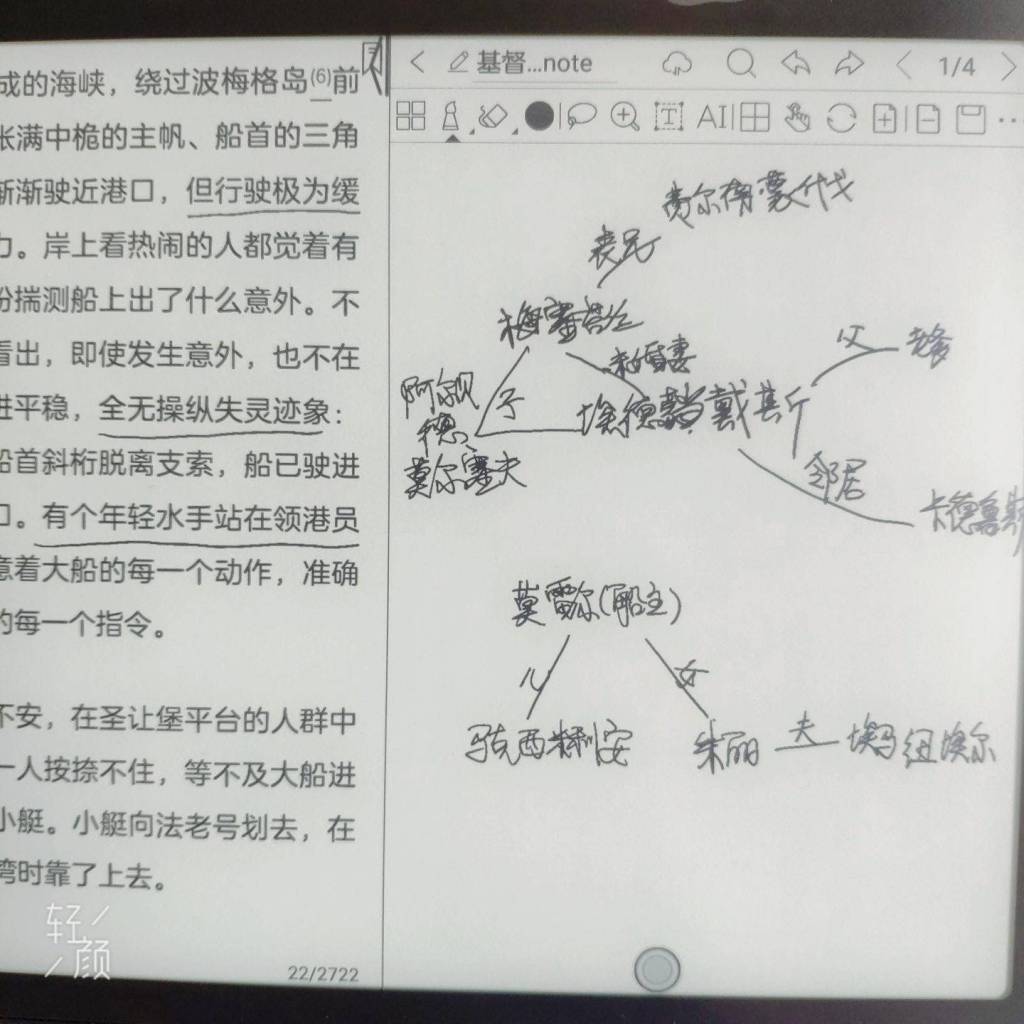 成的海峡，绕过波梅格岛(6)前
张满中桅的主帆、船首的三角
渐渐驶近港口，但行驶极为缓
力。岸上看热闹的人都觉着有
纷揣测船上出了什么意外。不
看出，即使发生意外，也不在
进平稳，全无操纵失灵迹象：
船首斜桁脱离支索，船已驶进
口。有个年轻水手站在领港员
意着大船的每一个动作，准确
的每一个指令。
不安，在圣让堡平台的人群中
一人按捺不住，等不及大船进
小艇。小艇向法老号划去，在
湾时靠了上去。
22/2722
轻
颜
基督...note
1/4
T
AI
费尔南·蒙代戈
梅塞苔丝
未婚妻
父
老爹
阿尔贝
子
埃德蒙·戴
德·
莫尔塞夫
邻居
卡德鲁斯
莫雷尔(船主)
儿
女
马克西米利安
朱丽
夫
埃马纽埃尔